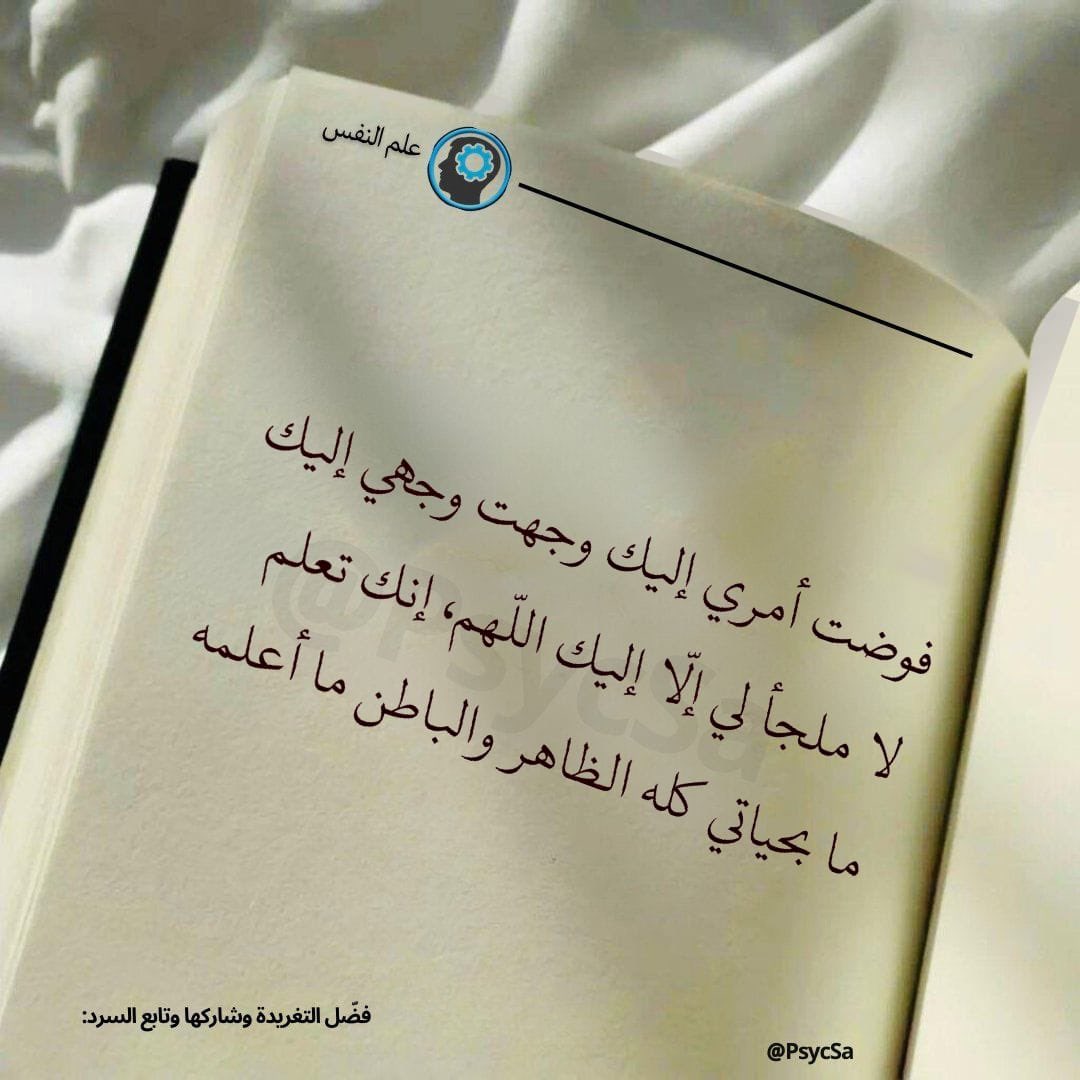 علم النفس
فوضت أمري إليك وجهت وجهي إليك
لا ملجأ لي إلّا إليك اللّهم، إنك تعلم
ما بحياتي كله الظاهر والباطن ما أعلمه
@PsycSa
فضّل التغريدة وشاركها وتابع السرد:
@PsycSa